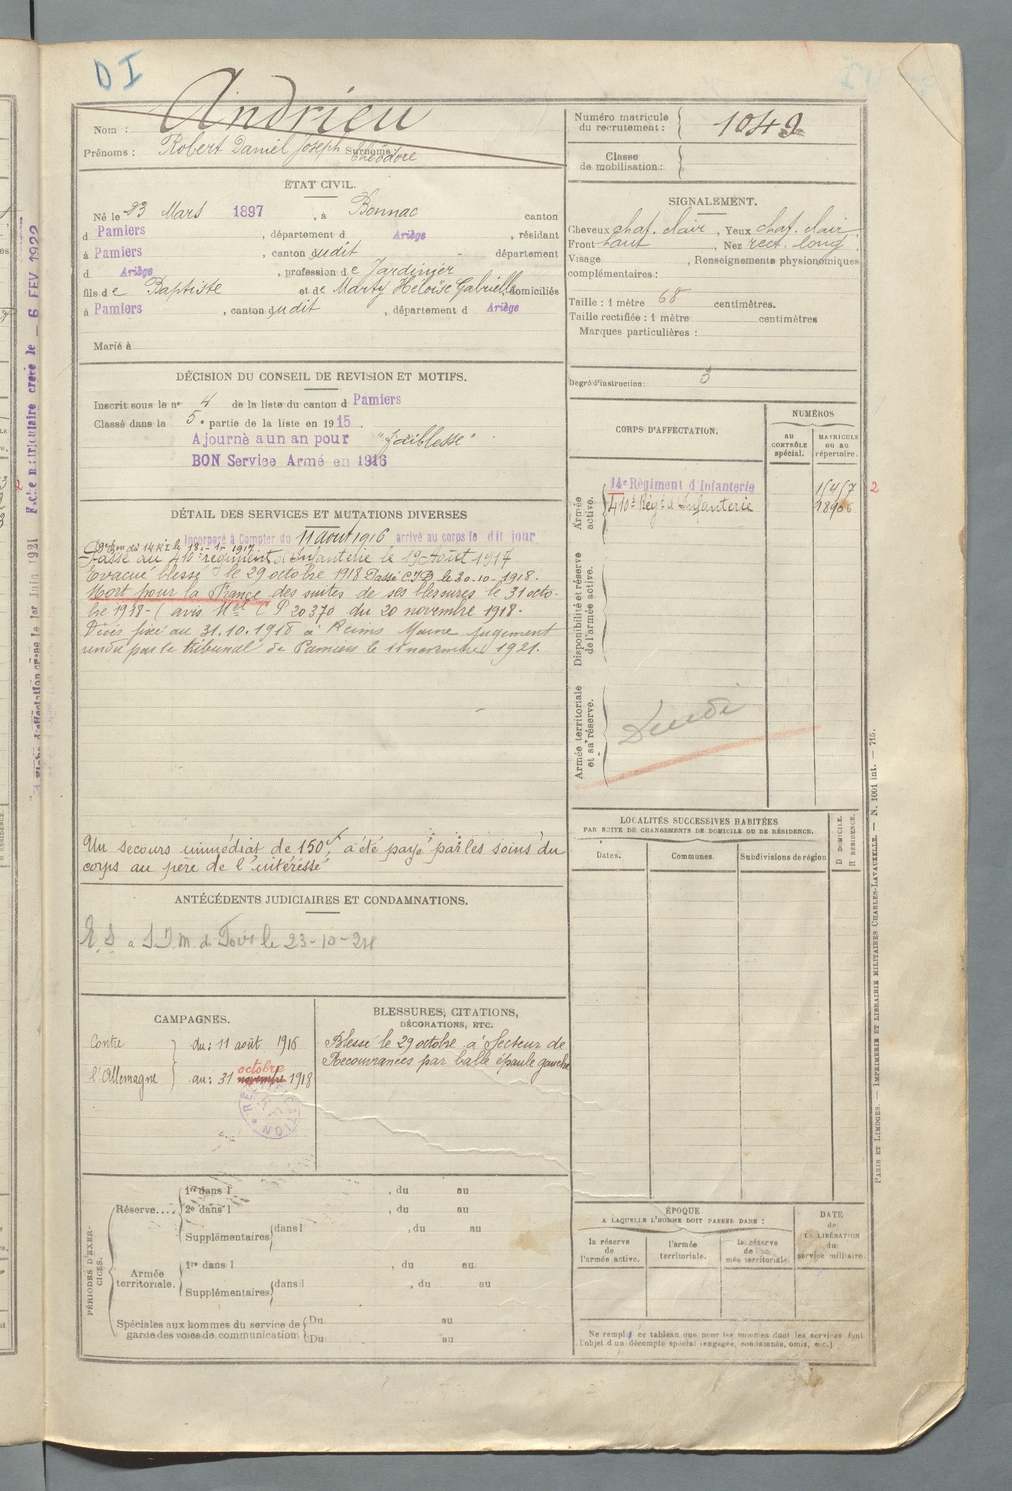 DI
Nom : Andrieu
Prénoms : Robert Daniel Joseph Théodore Surnoms :
Numéro matricule du recrutement : 1049
Classe de mobilisation :
ÉTAT CIVIL.
Né le 23 Mars 1897, à Bonnac canton
d Pamiers, département d Ariège, résidant
à Pamiers, canton sudit département
d Ariège, profession de Jardinier
fils de Baptiste et de Marty Héloïse Gabrielle domiciliés
à Pamiers, canton sudit, département d Ariège
Marié à
SIGNALEMENT.
Cheveux chat. clair, Yeux chat. clair,
Front haut, Nez rect. long,
Visage , Renseignements physionomiques
complémentaires :
Taille : 1 mètre 68 centimètres.
Taille rectifiée : 1 mètre centimètres
Marques particulières :
Degré d'instruction : 3
DÉCISION DU CONSEIL DE REVISION ET MOTIFS.
Inscrit sous le n° 4 de la liste du canton d Pamiers
Classé dans la 5e partie de la liste en 1915.
Ajourné a un an pour "faiblesse"
BON Service Armé en 1916
CORPS D'AFFECTATION.
NUMÉROS
au contrôle spécial.
MATRICULE ou au répertoire.
Armée active.
14e Régiment d'Infanterie
410e Régt d'Infanterie
Disponibilité et réserve de l'armée active.
Armée territoriale et sa réserve.
DÉTAIL DES SERVICES ET MUTATIONS DIVERSES
Incorporé à Compter du 11 août 1916 arrivé au corps le dit jour
Passé au 410e régiment d'Infanterie le 19 Août 1917
Evacué blessé le 29 octobre 1918 Passé C.I.D. le 20-10-1918.
Mort pour la France des suites de ses blessures le 31 octo-
bre 1918 - (avis 20370 du 20 novembre 1918 -
Décès fixé au 31.10.1918 à Reims Marne jugement
rendu par le tribunal de Pamiers le 11 novembre 1921.
Un secours immédiat de 150f, a été payé par les soins du
corps au père de l'intéréssé
ANTÉCÉDENTS JUDICIAIRES ET CONDAMNATIONS.
LOCALITÉS SUCCESSIVES HABITÉES
PAR SUITE DE CHANGEMENTS DE DOMICILE OU DE RÉSIDENCE.
Dates.
Communes.
Subdivisions de région
D DOMICILE.
R RÉSIDENCE.
CAMPAGNES.
Contre l'Allemagne
du : 11 août 1916
octobre
au : 31 novembre 1918
BLESSURES, CITATIONS,
DÉCORATIONS, ETC.
Blessé le 29 octobre à Secteur de
Recouvrances par balle épaule gauche
PÉRIODES D'EXERCICES.
Réserve....
1re dans l , du au
2e dans l , du au
Supplémentaires dans l , du au
Armée territoriale.
1re dans l , du au
Supplémentaires dans l , du au
Spéciales aux hommes du service de
garde des voies de communication
Du au
Du au
ÉPOQUE
A LAQUELLE L'HOMME DOIT PASSER DANS :
la réserve de l'armée active.
l'armée territoriale.
la réserve de l'armée territoriale.
DATE de LA LIBÉRATION du service militaire.
Ne remplir ce tableau que pour les hommes dont les services font
l'objet d'un décompte spécial (engagés, condamnés, omis, etc.)
PARIS ET LIMOGES. — IMPRIMERIE ET LIBRAIRIE MILITAIRES CHARLES-LAVAUZELLE. — N. 1001 int. — 715.